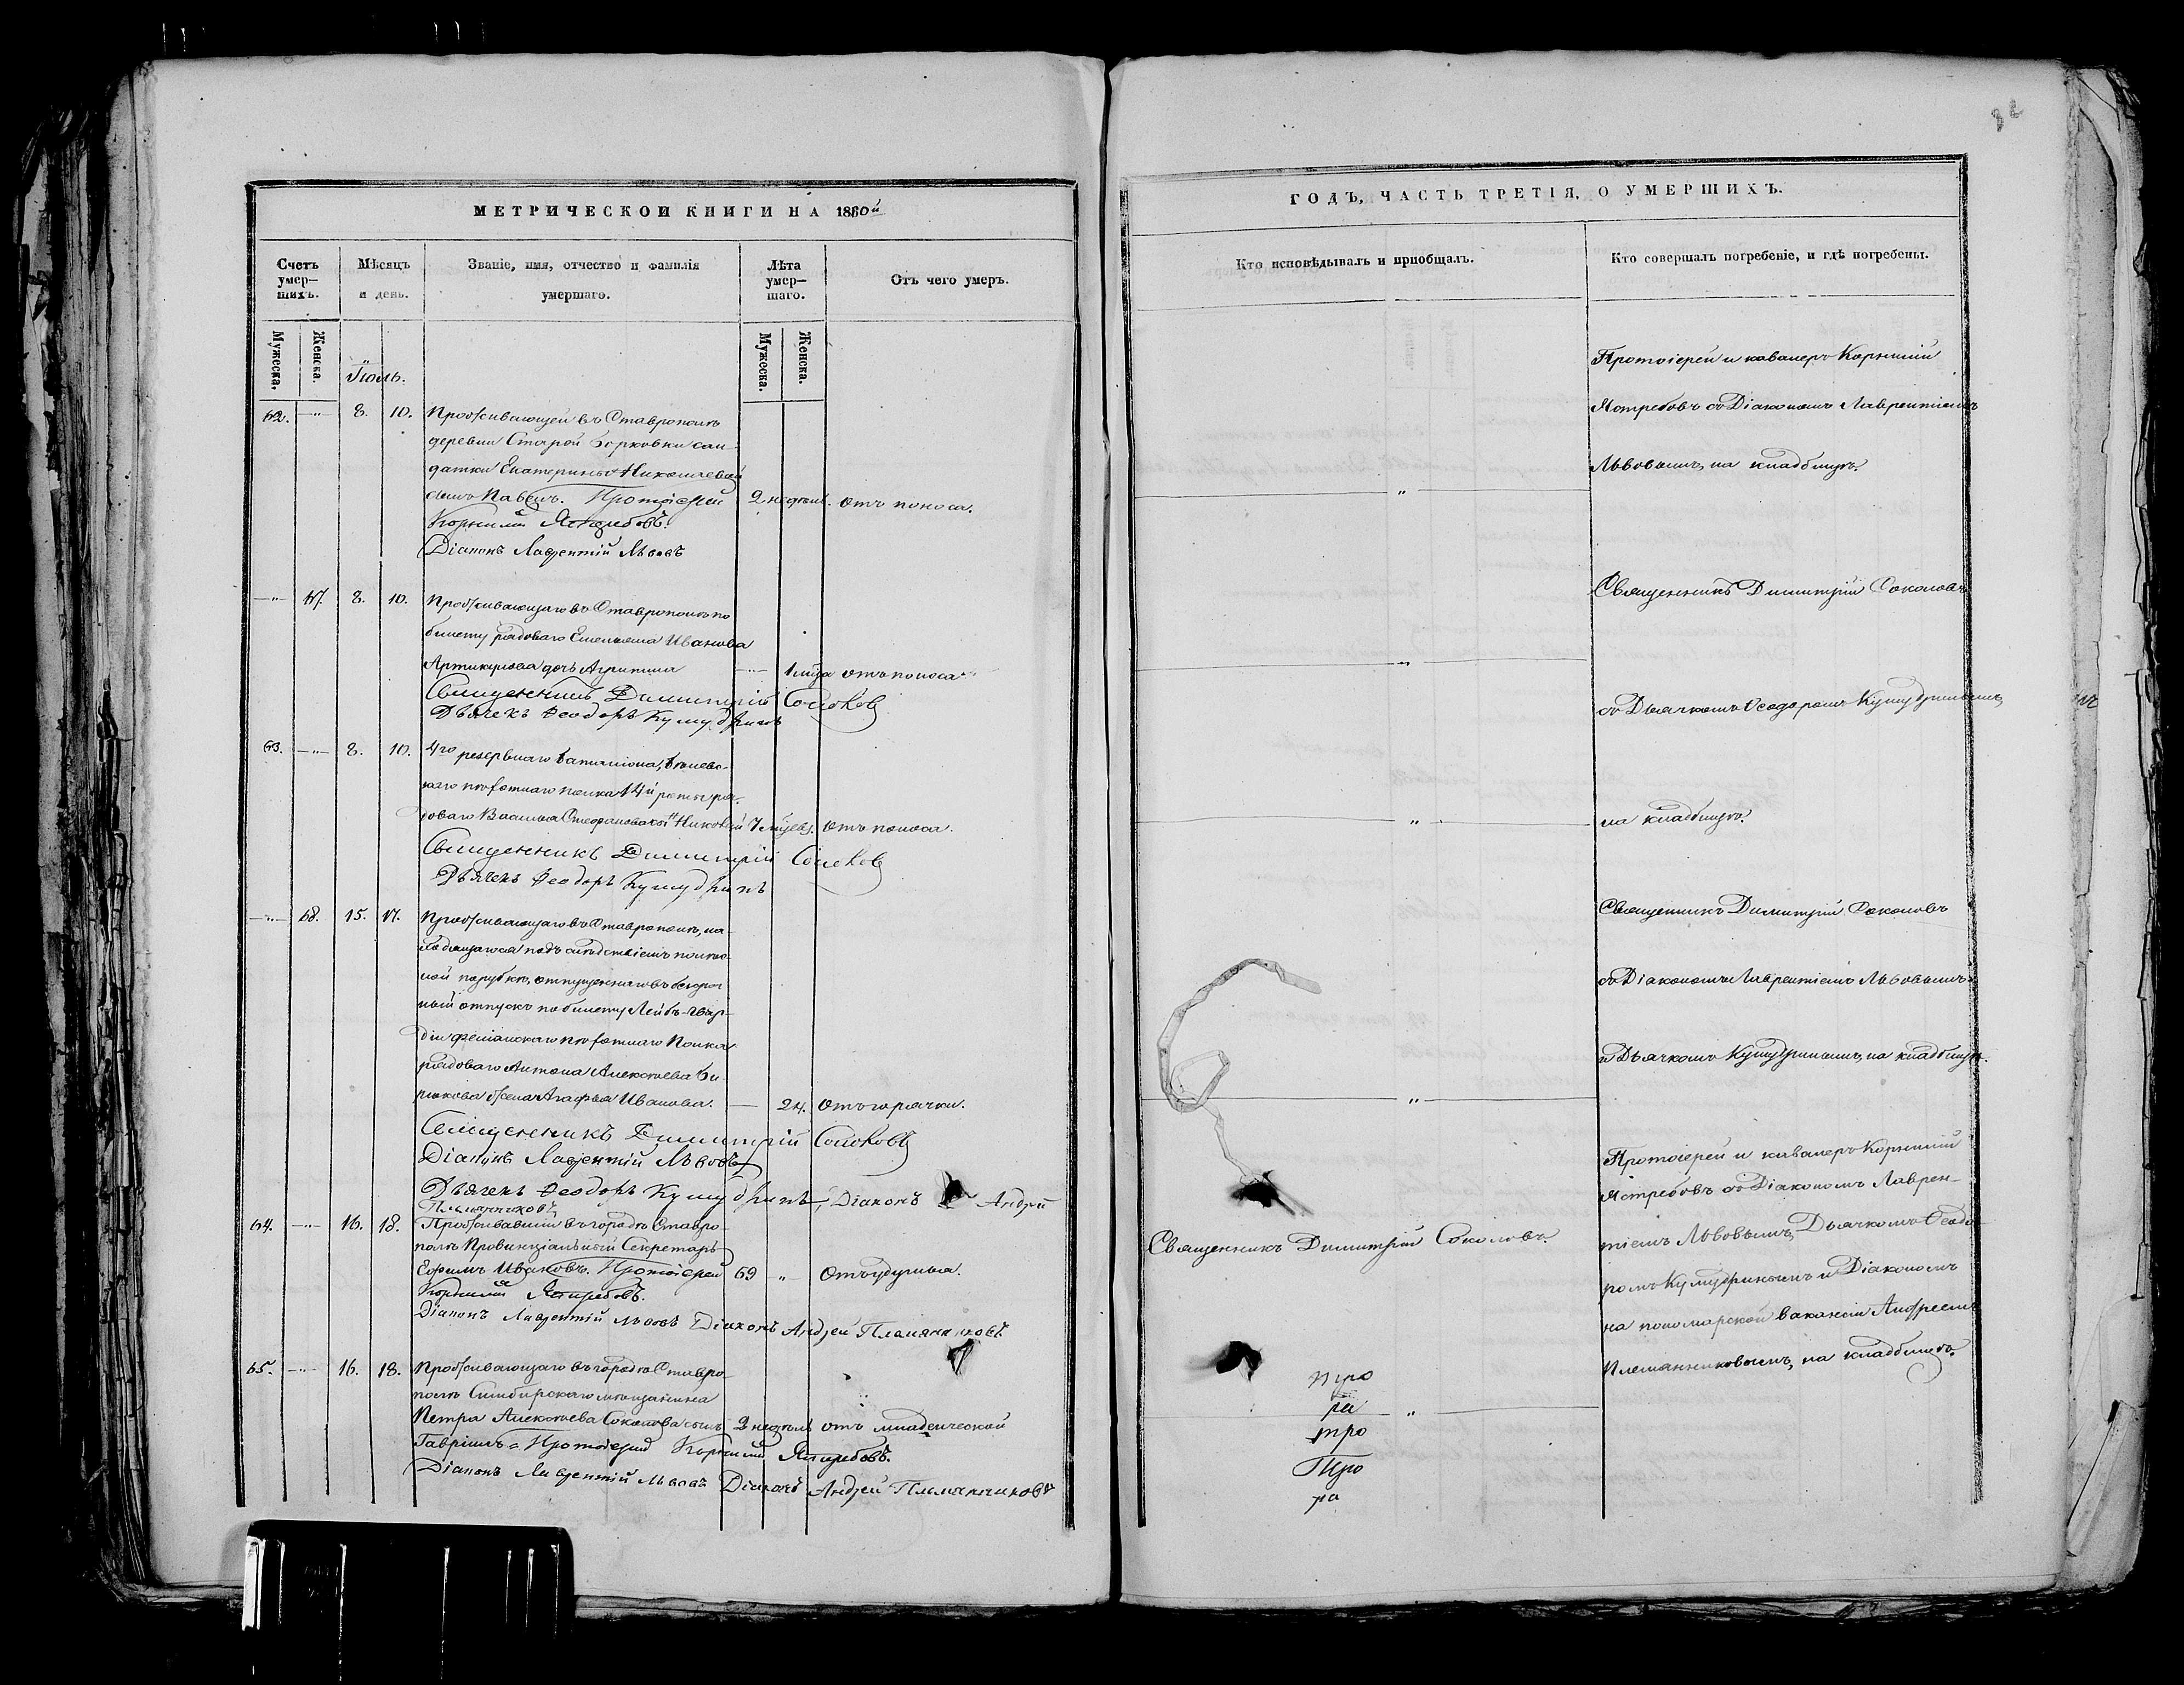 МЕТРИЧЕСКОЙ КНИГИ НА 1860й
Счетъ умер-шихъ.
Мѣсяцъ и день.
Званіе, имя, отчество и фамилія умершаго.
Лѣта умер-шаго.
Отъ чего умеръ.
Мужеска.
Женска.
Мужеска.
Женска.
Іюль.
62. —"— 8. 10. Проживающей въ Ставрополѣ
деревни Старой Борковки сол-
датки Екатерины Николаевой
сынъ Павелъ. Протоіерей 2 недѣль. Отъ поноса.
Корнилій Ястребовъ.
Діаконъ Лаврентій Львовъ
—"— 67. 8. 10. Проживающаго въ Ставрополѣ по
билету рядоваго Емельяна Иванова
дочь Агрипина —"— 1 мѣца отъ поноса
Священникъ Димитрій Соколовъ
Дьячекъ Ѳеодоръ Кумудринъ
63. —"— 8. 10. 4го резервнаго баталіона,
каго пѣхотнаго полка 14й роты ря-
доваго Василья Николай 7 мѣцевъ. Отъ поноса.
Священникъ Димитрій Соколовъ
Дьячекъ Ѳеодоръ Кумудринъ
—"— 68. 15. 17. Проживающаго въ Ставрополѣ, на-
ходящагося подъ слѣдствіемъ
ной порубкѣ, отпущеннаго въ безсроч-
ный отпускъ по билету Лейбъ-Гвар-
діи пѣхотнаго Полка
рядоваго Антона Алексѣева Би-
рюкова жена Агафья Иванова. — 24. Отъ горячки.
Священникъ Димитрій Соколовъ
Діаконъ Лаврентій Львовъ
Дьячекъ Ѳеодоръ Кумудринъ, Діаконъ Андрей
Племянниковъ
64. —"— 16. 18. Проживавшій въ городѣ Ставро-
полѣ Провинціальный Секретарь
Ефимъ Ивановъ. Протоіерей 69 —"— Отъ удушья.
Корнилій Ястребовъ.
Діаконъ Лаврентій Львовъ Діаконъ Андрей Племянниковъ
65. —"— 16. 18. Проживающаго въ городѣ Ставро-
полѣ Симбирскаго мѣщанина
Петра Алексѣева Соколова сынъ 2 недѣль отъ младенческой
Гавріилъ = Протоіерей Корнилій Ястребовъ.
Діаконъ Лаврентій Львовъ Діаконъ Андрей Племянниковъ
ГОДЪ, ЧАСТЬ ТРЕТІЯ, О УМЕРШИХЪ.
Кто исповѣдывалъ и пріобщалъ.
Кто совершалъ погребеніе, и гдѣ погребены.
Протоіерей и кавалеръ Корнилій
Ястребовъ съ Діакономъ Лаврентіемъ
Львовымъ, на кладбищѣ.
Священникъ Димитрій Соколовъ
съ Дьячкомъ Ѳеодоромъ Кумудринымъ,
на кладбищѣ.
Священникъ Димитрій Соколовъ
съ Діакономъ Лаврентіемъ Львовымъ
и Дьячкомъ Кумудринымъ, на кладбищѣ.
Протоіерей и кавалеръ Корнилій
Ястребовъ съ Діакономъ Лаврен-
Священникъ Димитрій Соколовъ. тіемъ Львовымъ, Дьячкомъ Ѳеодо-
ромъ Кумудринымъ и Діакономъ
на пономарской вакансіи Андреемъ
Племянниковымъ, на кладбищѣ.
про
ра
про
Про
ра